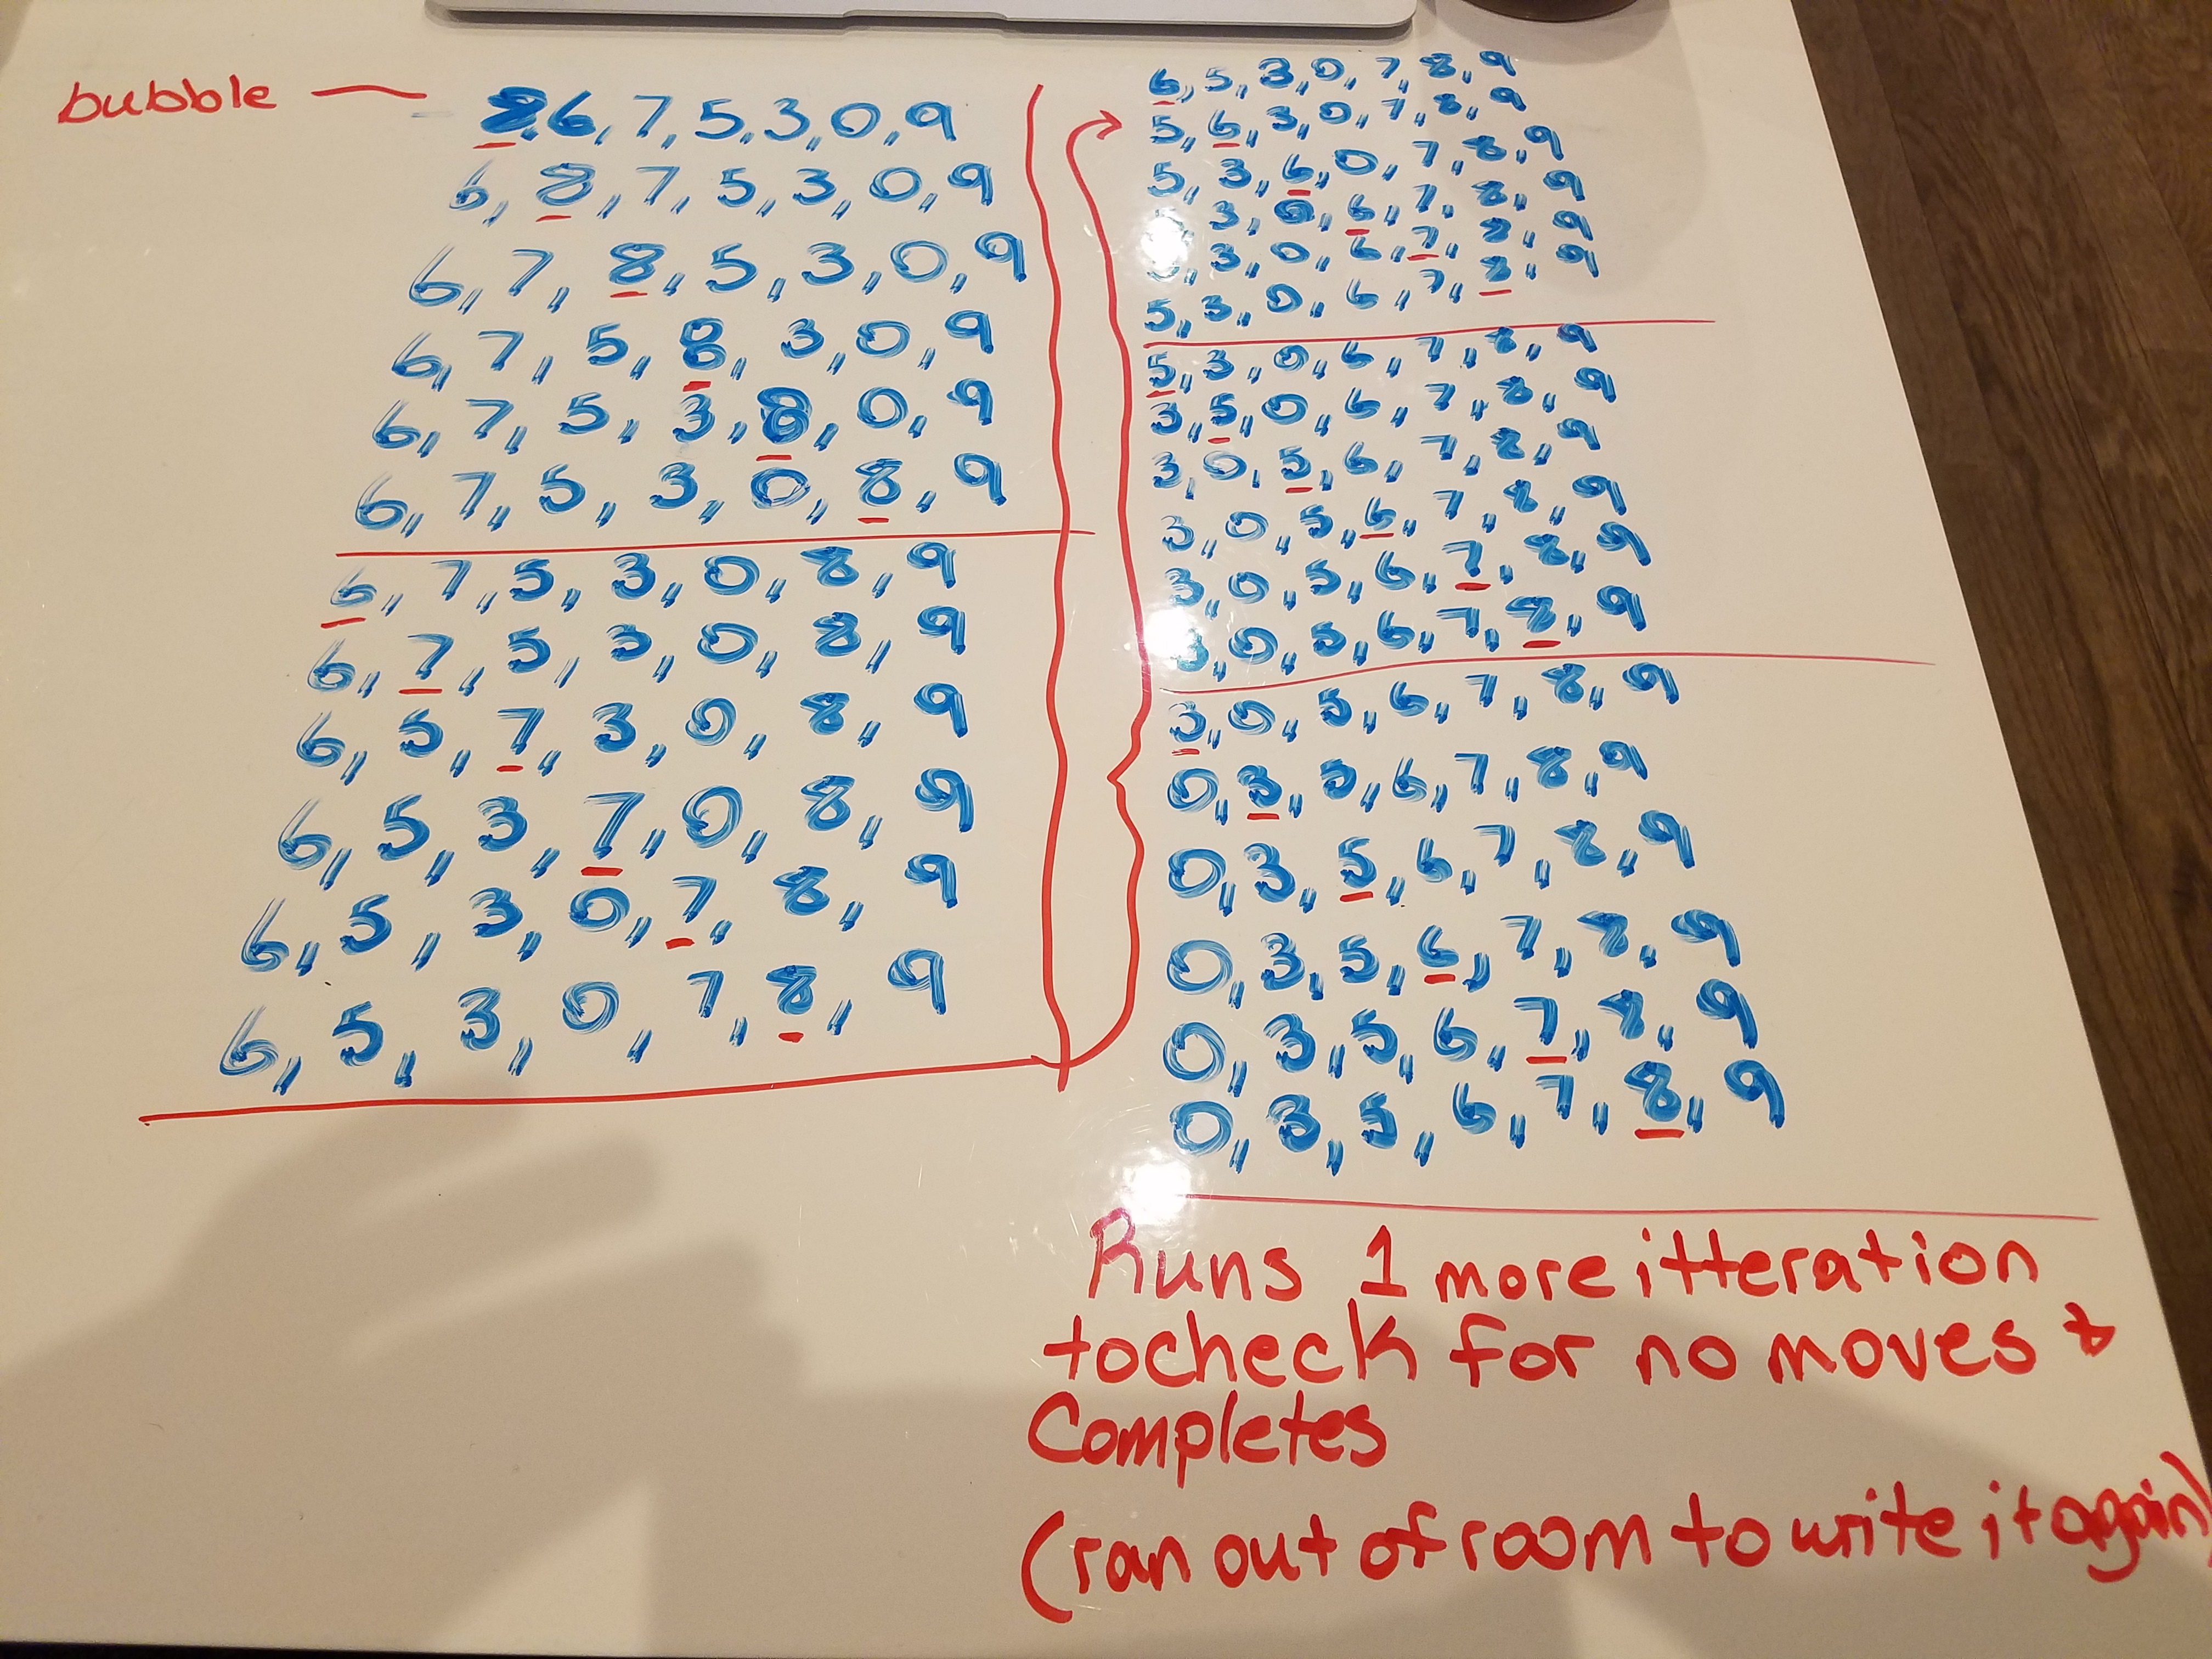 bubble — 8,6,7,5,3,0,9
6,8,7,5,3,0,9
6,7,8,5,3,0,9
6,7,5,8,3,0,9
6,7,5,3,8,0,9
6,7,5,3,0,8,9
6,7,5,3,0,8,9
6,7,5,3,0,8,9
6,5,7,3,0,8,9
6,5,3,7,0,8,9
6,5,3,0,7,8,9
6,5,3,0,7,8,9
6,5,3,0,7,8,9
5,6,3,0,7,8,9
5,3,6,0,7,8,9
3,0,6,7,8,9
3,0,6,7,8,9
5,3,0,6,7,8,9
5,3,0,6,7,8,9
3,5,0,6,7,8,9
3,0,5,6,7,8,9
3,0,5,6,7,8,9
3,0,5,6,7,8,9
3,0,5,6,7,8,9
3,0,5,6,7,8,9
0,3,5,6,7,8,9
0,3,5,6,7,8,9
0,3,5,6,7,8,9
0,3,5,6,7,8,9
0,3,5,6,7,8,9
Runs 1 more itteration
to check for no moves &
Completes
(ran out of room to write it again)